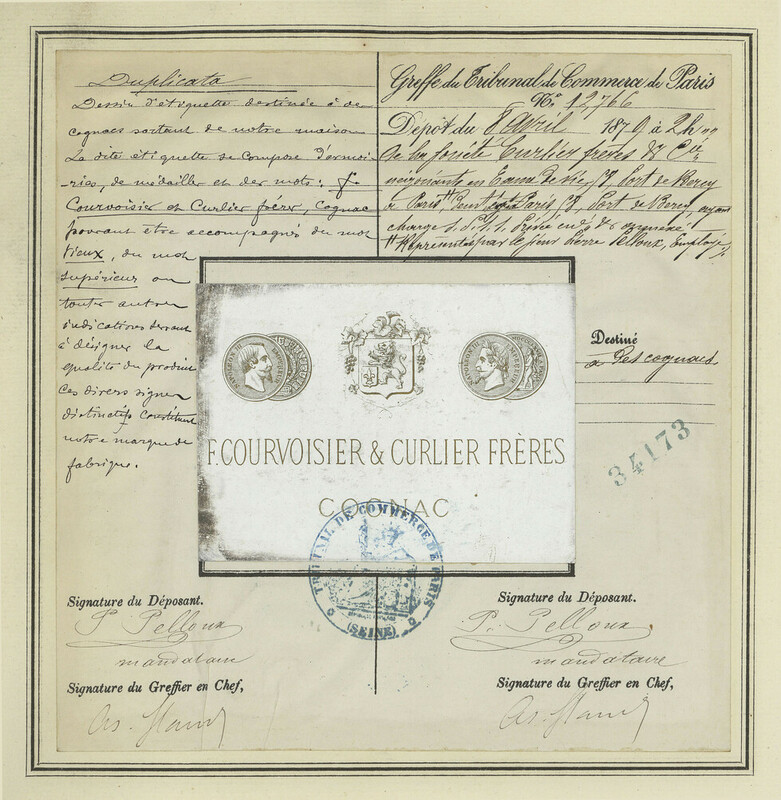 Duplicata
Dessin d'étiquette destinée à des
cognacs sortant de notre maison
La dite étiquette se compose d'armoi-
ries, de médailles et des mots: F.
Courvoisier et Curlier frères, Cognac
pouvant être accompagnés du mot
Vieux, du mot
Supérieur ou
toutes autres
indications servant
à désigner la
qualité du produit
Ces divers signes
distinctifs constituent
notre marque de
fabrique.
Greffe du Tribunal de Commerce de Paris
No. 12766
Dépôt du 8 Avril 1879 à 2h
Société Curlier frères & Cie
négociants en Eaux de Vie, Port de Bercy
à Paris, Paris, Port de Bercy, ayant
charge
Représentés par le sieur Pierre Pelloux, Employé
Destiné
à des cognacs
34173
NAPOLEON III EMPEREUR
NAPOLEON III EMPEREUR
F. COURVOISIER & CURLIER FRÈRES
COGNAC
TRIBUNAL DE COMMERCE DE PARIS
(SEINE)
Signature du Déposant.
P. Pelloux
mandataire
Signature du Greffier en Chef,
Signature du Déposant.
P. Pelloux
mandataire
Signature du Greffier en Chef,